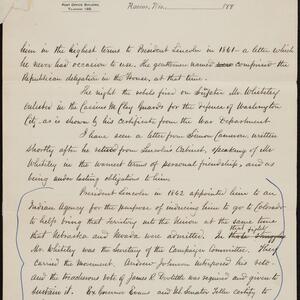 POST OFFICE BUILDING,
Racine, Wis. 188
him in the highest terms to President Lincoln in 1861 - a letter which
he never had occasion to use. The gentlemen named comprised the
Republican delegation in the House, at that time.
The night the rebels fired on Sumter Mr. Whiteley
enlisted in the Cassius M. Clay Guards for the defense of Washington
City, as is shown by his certificate from the War Department.
I have seen a letter from Simon Cameron, written
shortly after he retired from Lincoln's Cabinet, speaking of Mr.
Whiteley in the warmest terms of personal friendship, and as
being under lasting obligations to him.
President Lincoln in 1862 appointed him to an
Indian Agency for the purpose of inducing him to go to Colorado
to help bring that Territory into the Union at the same time
that Nebraska and Nevada were admitted. In that fight
Mr. Whiteley was the Secretary of the Campaign Committee. They
carried the movement. Andrew Johnson interposed his veto
and the treacherous vote of James R. Doolittle was required and given to
sustain it. Ex Governor Evans and U.S. Senator Teller certify to